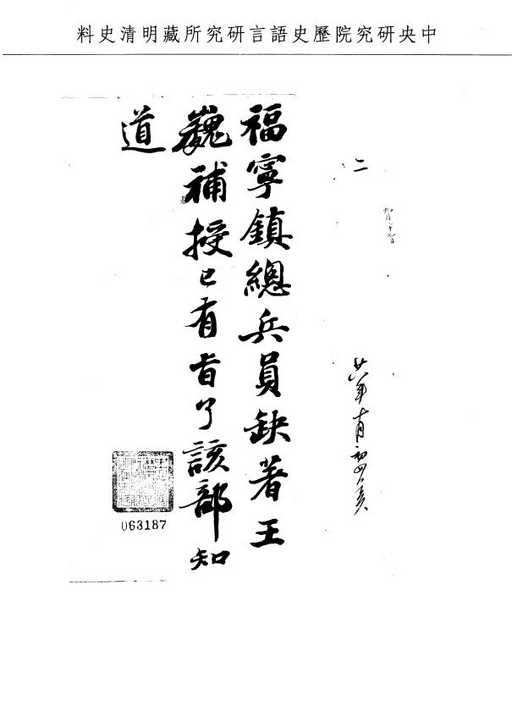 中央研究院歷史語言研究所藏明清史料
二
廿六年十月初四日奏
福寧鎮總兵員缺著王
巍補授已有旨了該部知
道
063187